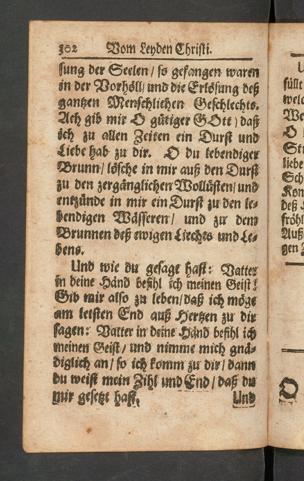 302 Vom Leyden Christi.
sung der Seelen / so gefangen waren
in der Vorhöll / und die Erlösung deß
gantzen Menschlichen Geschlechts.
Ach gib mir O gütiger GOtt / daß
ich zu allen Zeiten ein Durst und
Liebe hab zu dir. O du lebendiger
Brunn / lösche in mir auß den Durst
zu den zergänglichen Wollüsten / und
entzünde in mir ein Durst zu den le-
bendigen Wässeren / und zu dem
Brunnen deß ewigen Liechts und Le-
bens.
Und wie du gesagt hast: Vatter
in deine Händ befihl ich meinen Geist!
Gib mir also zu leben / daß ich möge
am letsten End auß Hertzen zu dir
sagen: Vatter in deine Händ befihl ich
meinen Geist / und nimme mich gnä-
diglich an / so ich komm zu dir / dann
du weist mein Zihl und End / daß du
mir gesetzt hast.
Und